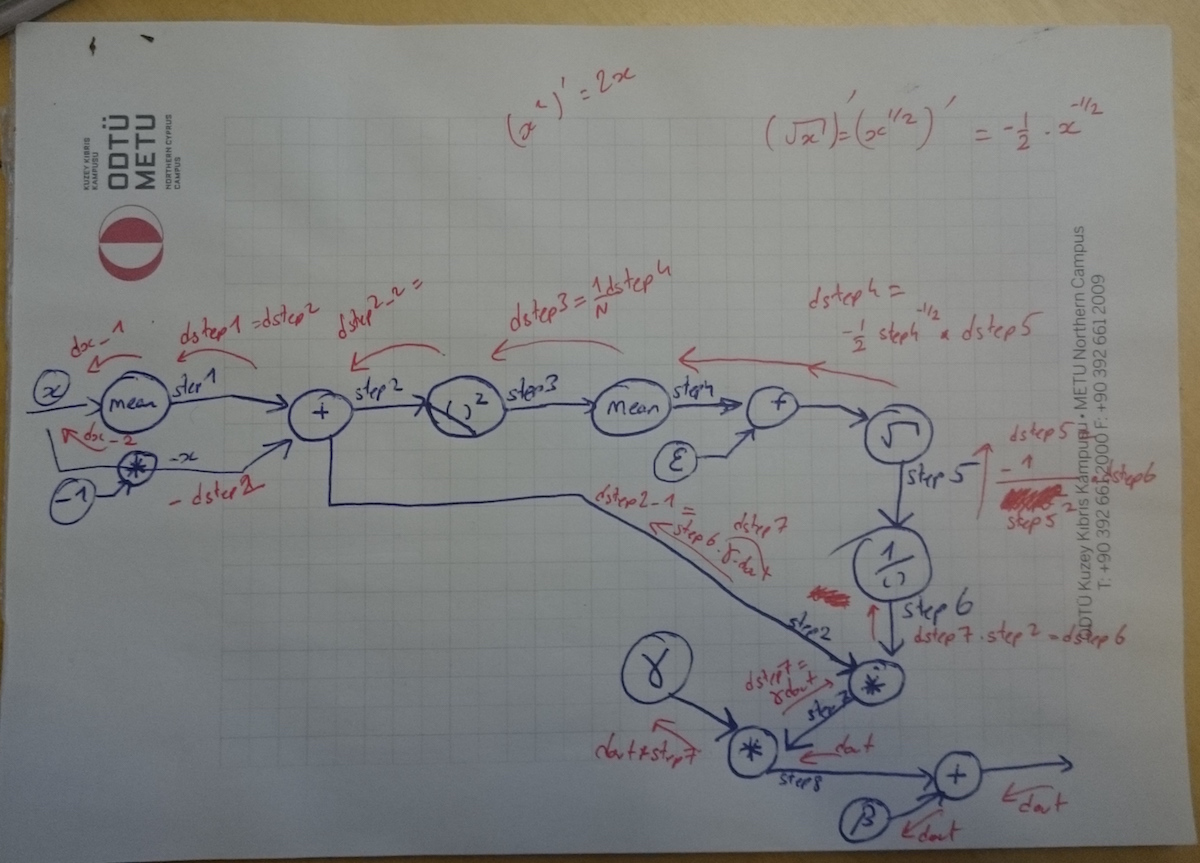 KUZEY KIBRIS
KAMPUSU
ODTÜ
METU
NORTHERN CYPRUS
CAMPUS
(x²)' = 2x
(√x)' = (x^1/2)' = -1/2 · x^-1/2
dx_1
dstep1 = dstep2
dstep2_2 =
dstep3 = 1/N dstep4
dstep4 =
-1/2 step4^-1/2 * dstep5
x
mean
step1
+
step2
( )²
step3
mean
step4
+
ε
√
dx_2
-1
*
-x
- dstep2
step5
dstep5 =
-1 / step5² * dstep6
1/( )
step6
dstep7 · step2 = dstep6
dstep2-1 =
step6 · γ·dout
dstep7
step2
γ
dstep7 =
γdout
*
step7
dout * step7
*
dout
step8
+
β
dout
dout
ODTÜ Kuzey Kıbrıs Kampusu • METU Northern Campus
T: +90 392 661 2000 F: +90 392 661 2009